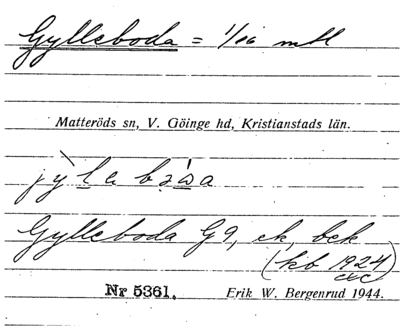 Gylleboda = 1/16 mtl
Matteröds sn, V. Göinge hd, Kristianstads län.
Gylleboda G9, ek, bek
(kb 1924)
Nr 5361. Erik W. Bergenrud 1944.